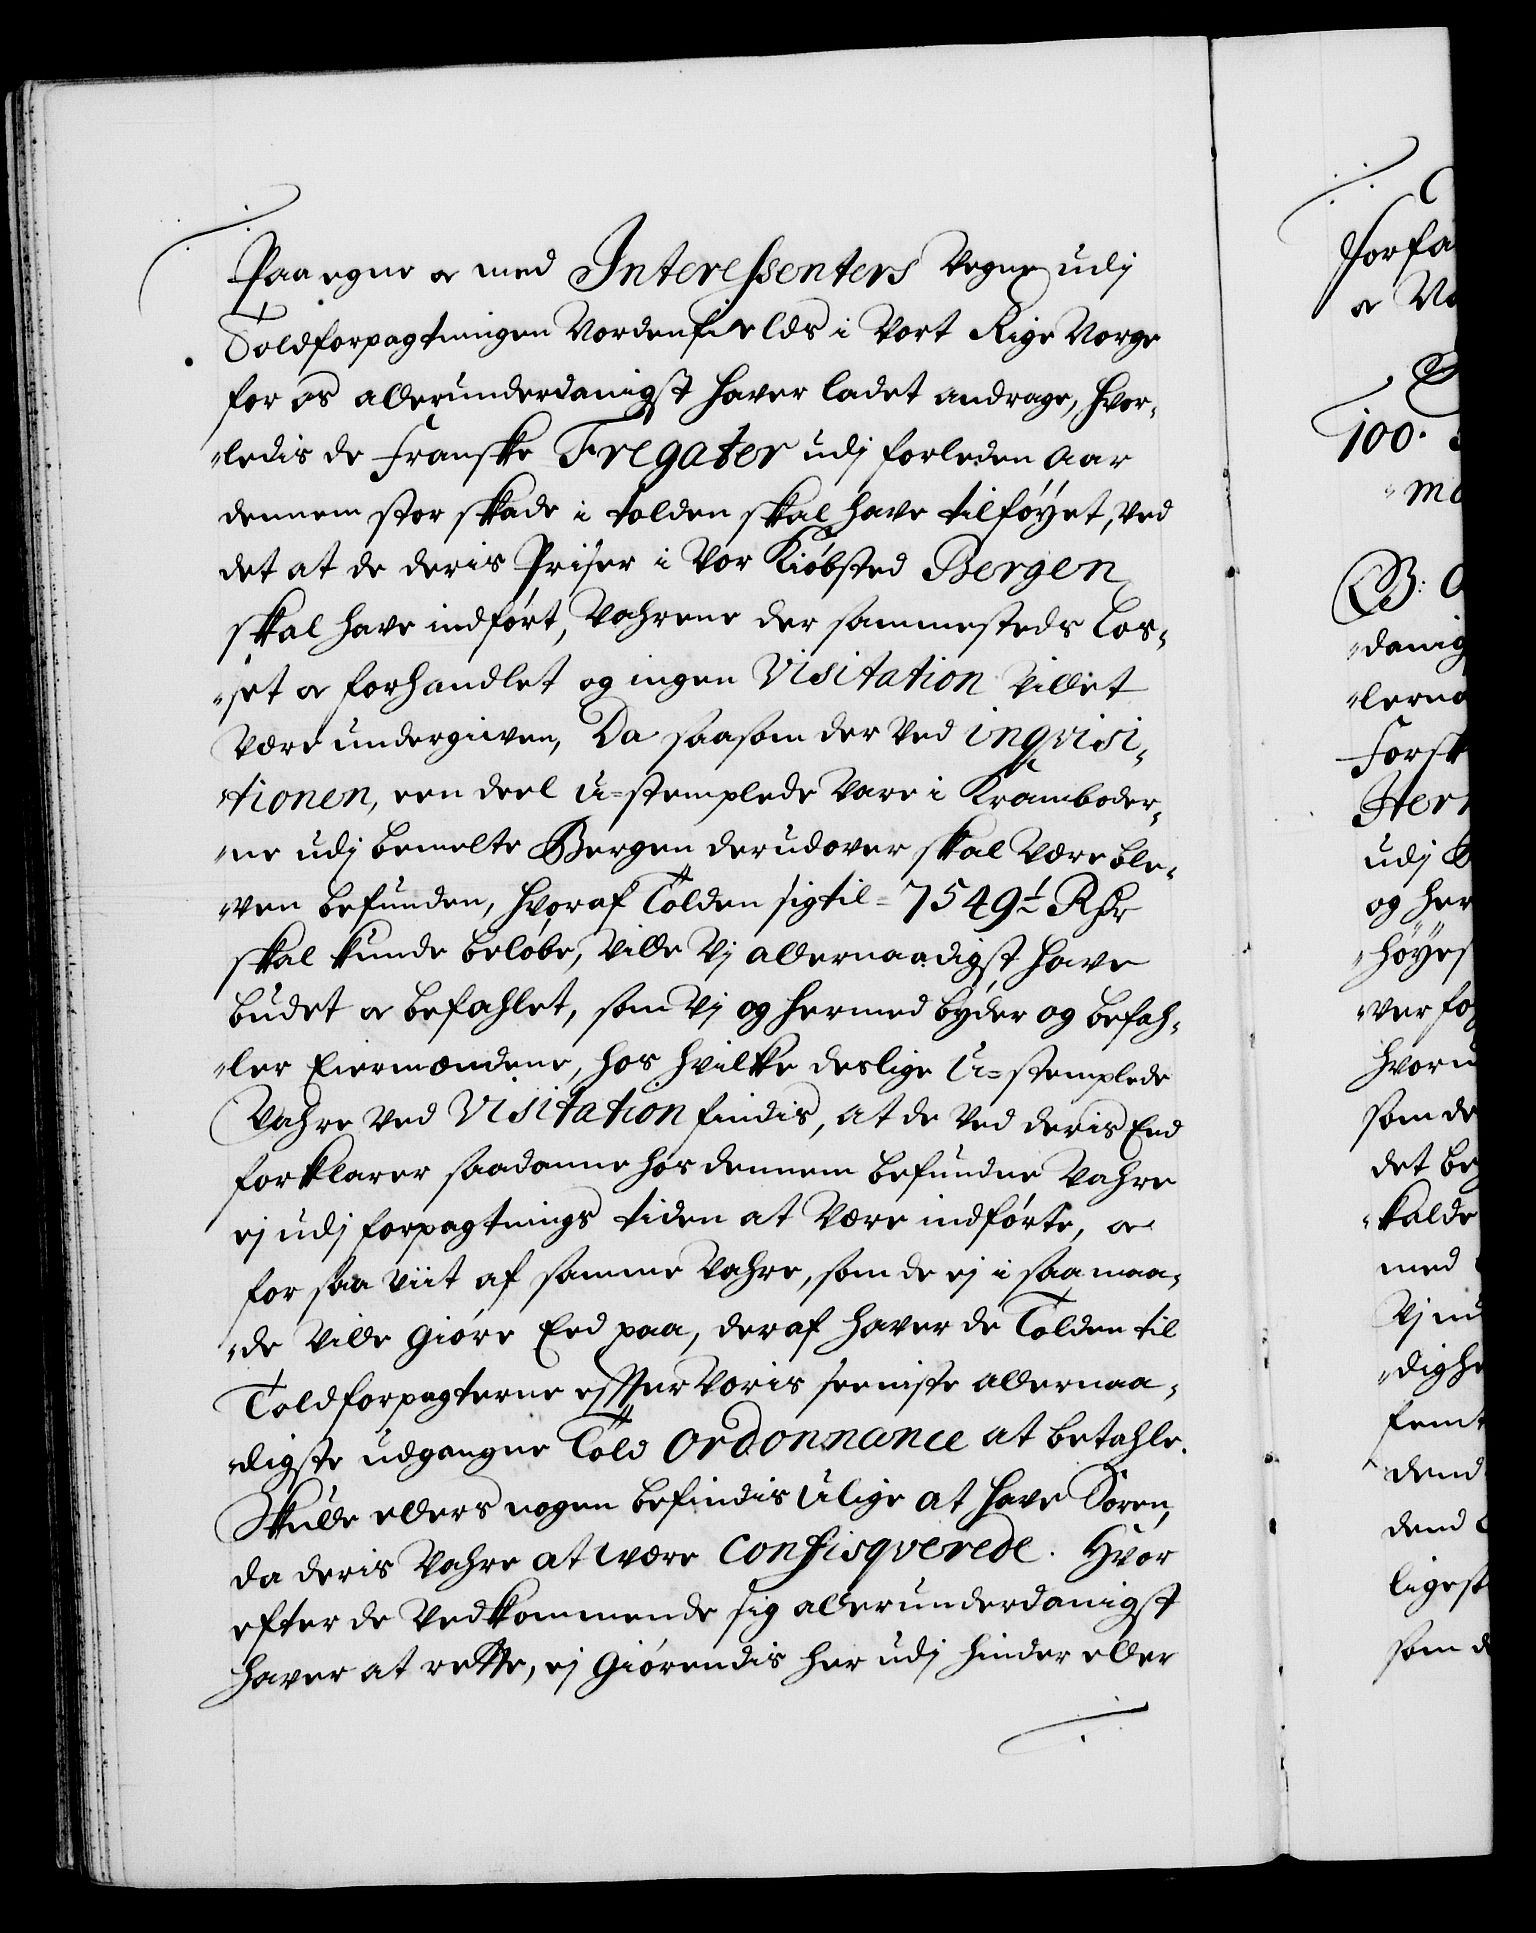 Paa egne og med Interessenters Vegne udj
Toldforpagtningen Nordenfields i Vort Rige Norge
for os allerunderdanigst haver ladet andrage, hvor„
„ledis de franske Fregater udj forleden Aar
dennem stor skade i tolden skal have tilføyet, ved
det at de deris Priser i Vor Kiøbsted Bergen
skal have indført, Vahrene der sammesteds los„
„set og forhandlet og ingen Visitation villet
være undergiven, Da saasom der ved inqvisi„
„tionen, een deel U=stemplede Vare i Kramboder„
„ne udj bemelte Bergen derudover skal være ble„
„ven befunden, hvoraf Tolden sig til = 7549½ Rdr
skal kunde beløbe, Ville Vj allernaadigst have
budet og befahlet, som Vj og hermed byder og befah„
„ler Eiermændene, hos hvilke deslige U=stemplede
Vahre ved Visitation findis, at de ved deris Eed
forklarer saadanne hos dennem befundne Vahre
ej udj forpagtnings tiden at være indførte, og
for saa viit af samme Vahre, som de ej i saa maa„
„de ville giøre Eed paa, deraf haver de Tolden til
Toldforpagterne efter Voris seeniste allernaa„
„digste udgangne Told Ordonnance at betahle.
Skulle ellers nogen befindis ulige at have Soren,
da deris Vahre at være Confisqverede. Hvor
efter de Vedkommende sig allerunderdanigst
haver at rette, ej giørendis her udj hinder eller
forfa
og Vo
100.
„ma
B:
„danig
„lerna
Forsk
Her
udj
og her
„høyes
„ver fo
hvoru
som de
det be
„kalde
med
Vj nu
„dighe
femt
dend
dend
ligest
som d